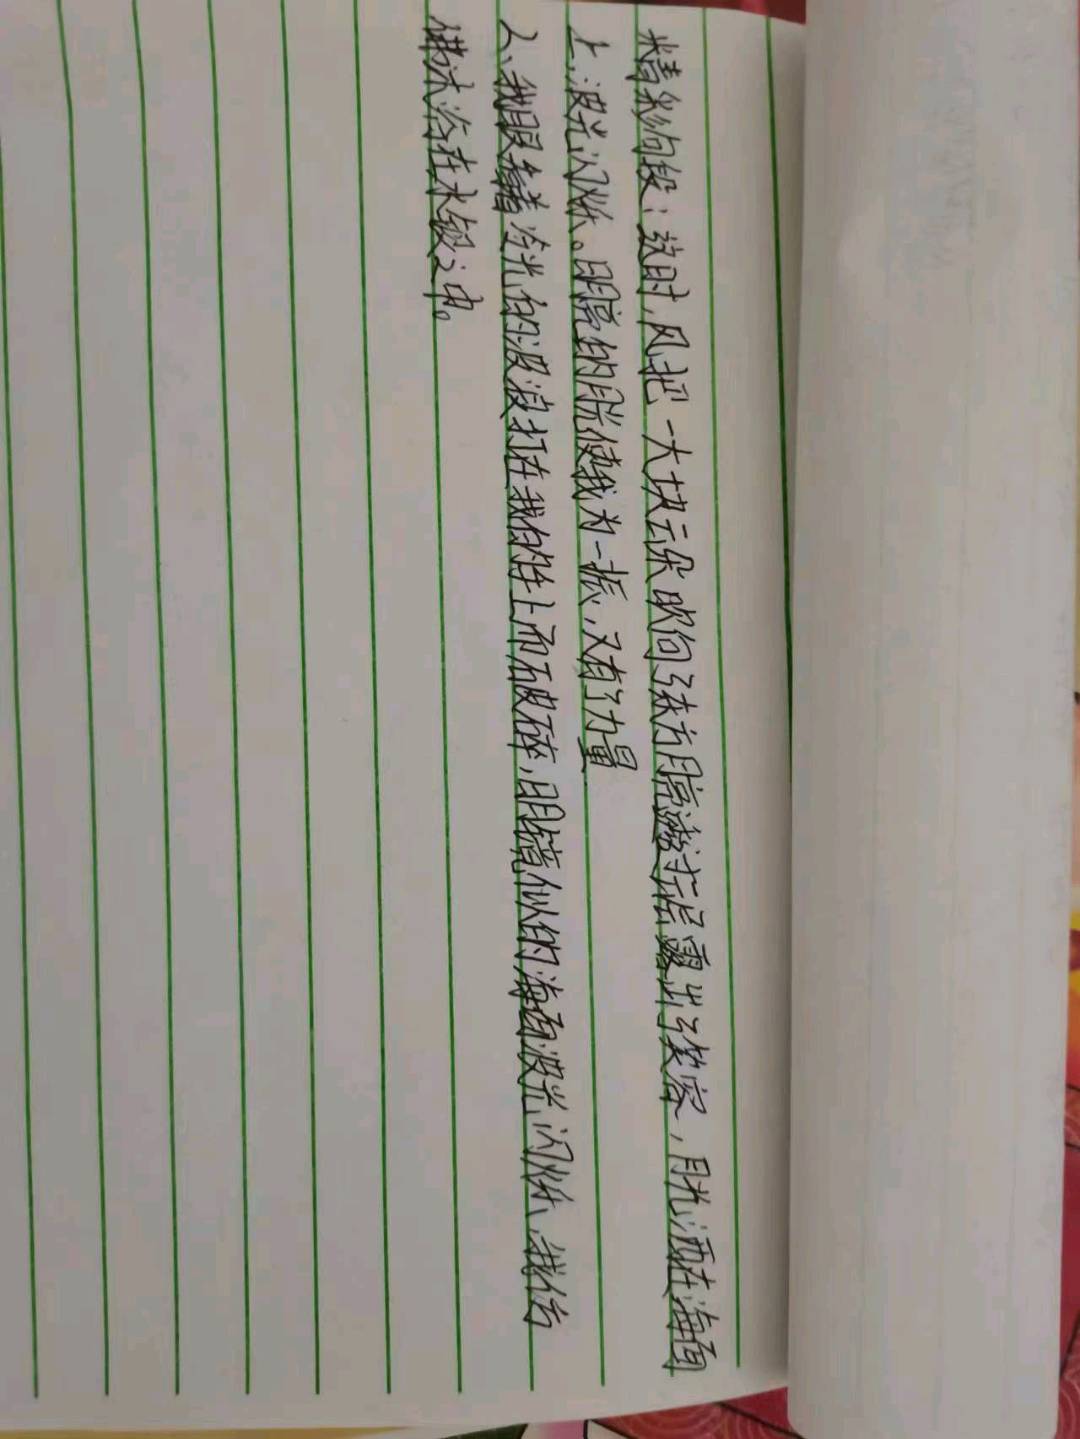 精彩句段:这时,风把一大块云朵吹向了东方月亮透过云层露出了笑容,月光洒在海面
上,波光闪烁。明亮的月光使我为一振,又有了力量
2、我眼看着冷光的波浪打在我们的身上而破碎,明镜似的海面波光闪烁、我们仿
佛沐浴在水银之中。